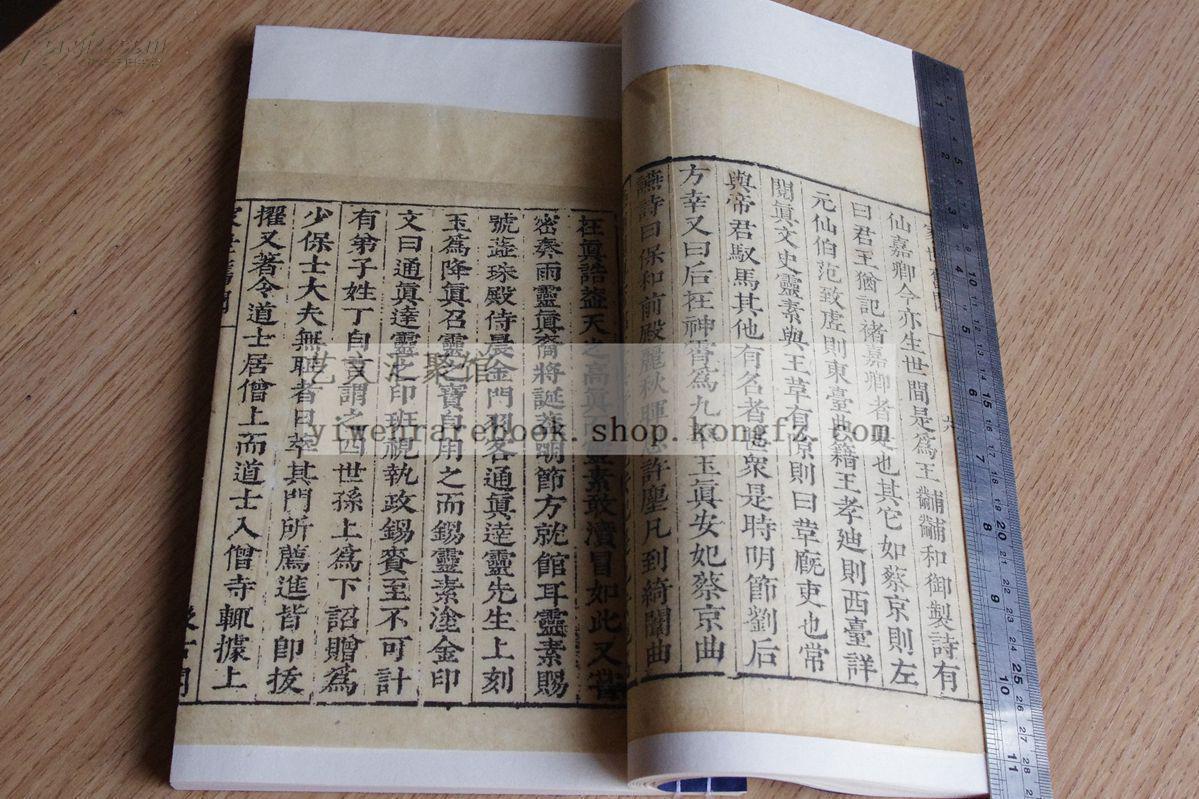 仙嘉卿今亦生世間是爲王黼黼和御製詩有
曰君王猶記褚嘉卿者是也其它如蔡京則左
元仙伯范致虛則東臺典籍王孝迪則西臺詳
閱真文史靈素與王草有京則曰草廐吏也常
與帝君馭馬其他有名者悉衆是時明節劉后
方幸又曰后在神霄爲九華玉眞安妃蔡京曲
讌詩曰保和前殿麗秋暉恩許塵凡到綺閣曲
在眞誥蓋天之高眞而靈素敢瀆冒如此又嘗
密奏雨靈眞裔將誕蓋明節方就館耳靈素賜
號蘂珠殿侍晨金門羽客通眞達靈先生上刻
玉爲降眞召靈之寶自用之而錫靈素塗金印
文曰通眞達靈之印班視執政錫賚至不可計
有弟子姓丁自言謂之四世孫上爲下詔贈爲
少保士大夫無耻者日萃其門所薦進皆卽拔
擢又著令道士居僧上而道士入僧寺輒據上
家世舊聞
艺文汇聚馆
yiwenrarebook.shop.kongfz.com